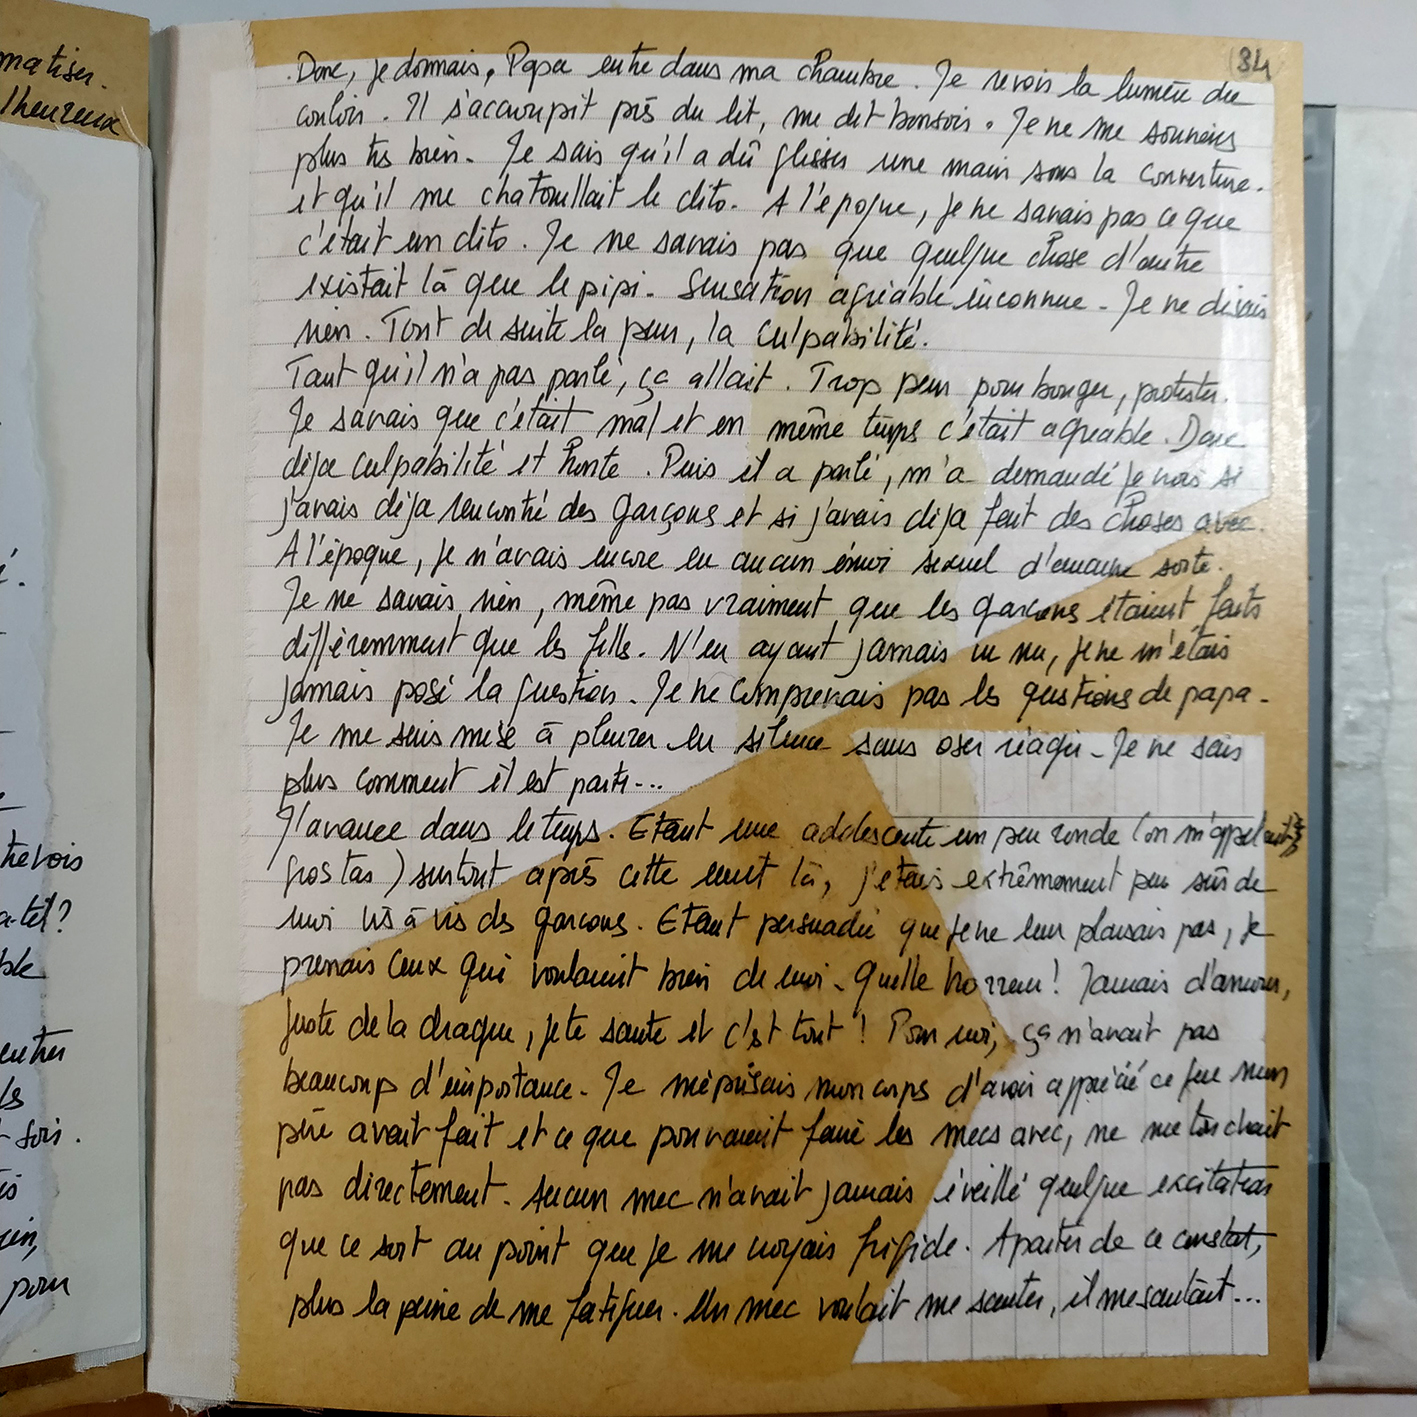 34
Donc, je dormais, Papa entre dans ma chambre. Je revois la lumière du
couloir. Il s'accroupit près du lit, me dit bonsoir. Je ne me souviens
plus très bien. Je sais qu'il a dû glisser une main sous la couverture.
et qu'il me chatouillait le clito. A l'époque, je ne savais pas ce que
c'était un clito. Je ne savais pas que quelque chose d'autre
existait là que le pipi. Sensation agréable inconnue. Je ne disais
rien. Tout de suite la peur, la culpabilité.
Tant qu'il n'a pas parlé, ça allait. Trop peur pour bouger, protester.
Je savais que c'était mal et en même temps c'était agréable. Donc
déja culpabilité et honte. Puis il a parlé, m'a demandé je crois si
j'avais déja rencontré des garçons et si j'avais déja fait des choses avec.
A l'époque, je n'avais encore eu aucun émoi sexuel d'aucune sorte.
Je ne savais rien, même pas vraiment que les garcons étaient faits
différemment que les filles. N'en ayant jamais vu nu, je ne m'étais
jamais posé la question. Je ne comprenais pas les questions de papa.
Je me suis mise à pleurer en silence sans oser réagir. Je ne sais
plus comment il est parti...
J'avance dans le temps. Etant une adolescente un peu ronde (on m'appelait
gros tas) surtout après cette nuit là, j'étais extrêmement peu sûr de
moi vis à vis des garcons. Etant persuadée que je ne leur plaisais pas, je
prenais ceux qui voulaient bien de moi. Quelle horreur! Jamais d'amour,
juste de la drague, je te saute et c'est tout! Pour moi, ça n'avait pas
beaucoup d'importance. Je méprisais mon corps d'avoir apprécié ce que mon
père avait fait et ce que pouvaient faire les mecs avec, ne me touchait
pas directement. Aucun mec n'avait jamais éveillé quelque excitation
que ce soit au point que je me croyais frigide. A partir de ce constat,
plus la peine de me fatiguer. Un mec voulait me sauter, il me sautait...
matiser.
lheureux
trevois
a-tél?
ble
sois.
pour